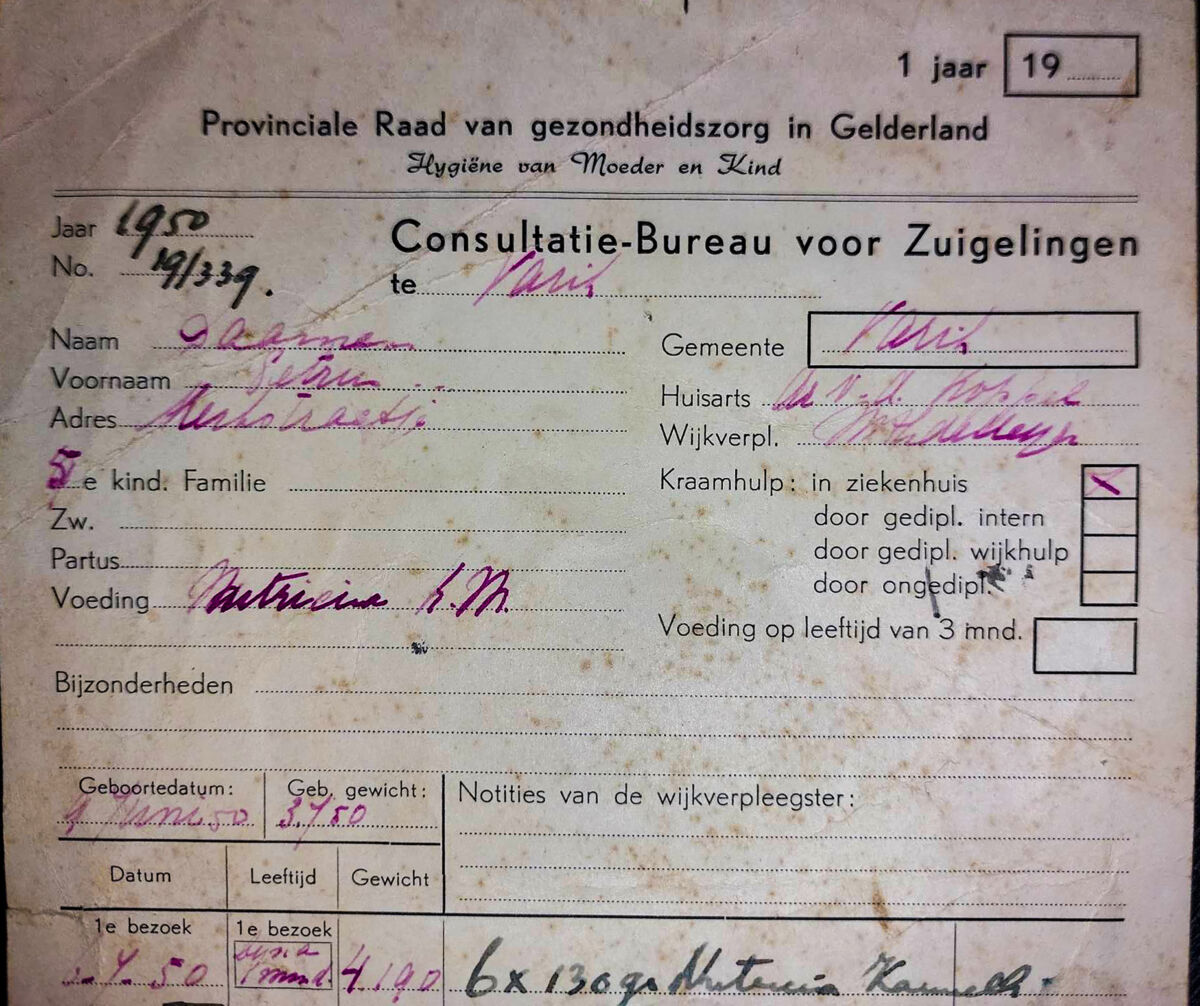 1 jaar 19
Provinciale Raad van gezondheidszorg in Gelderland
Hygiëne van Moeder en Kind
Jaar 1950
Consultatie-Bureau voor Zuigelingen
No. 19/339.
te Varik
Naam Daamen
Gemeente Varik
Voornaam
Huisarts dr v.d. Koppel
Adres Kerkstraatje
Wijkverpl.
5e kind. Familie
Kraamhulp: in ziekenhuis
Zw.
door gedipl. intern
door gedipl. wijkhulp
Partus
door ongedipl.
Voeding Nutricia K.M.
Voeding op leeftijd van 3 mnd.
Bijzonderheden
Geboortedatum: Geb. gewicht: Notities van de wijkverpleegster:
Juni 50 3750
Datum Leeftijd Gewicht
1e bezoek 1e bezoek
7.50 bijna 1 mnd. 4190 6x 130 gr Nutricia